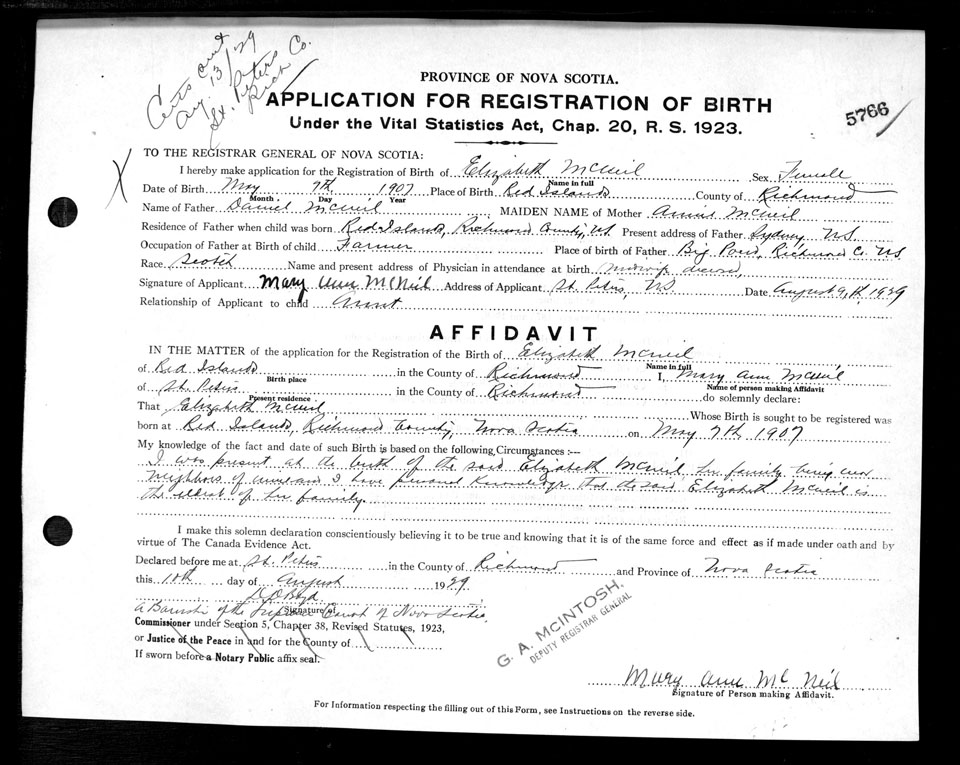 Certs out
Aug. 13/29
St. Peters Co.
Rich
PROVINCE OF NOVA SCOTIA.
APPLICATION FOR REGISTRATION OF BIRTH
Under the Vital Statistics Act, Chap. 20, R. S. 1923.
5766
TO THE REGISTRAR GENERAL OF NOVA SCOTIA:
I hereby make application for the Registration of Birth of Elizabeth McNeil Sex Female
Name in full
Date of Birth May 7th 1907 Place of Birth Red Islands County of Richmond
Month Day Year
Name of Father Daniel McNeil MAIDEN NAME of Mother Annie McNeil
Residence of Father when child was born Red Islands, Richmond County, N.S. Present address of Father Sydney, N.S.
Occupation of Father at Birth of child Farmer Place of birth of Father Big Pond, Richmond Co. N.S.
Race Scotch Name and present address of Physician in attendance at birth midwife
Signature of Applicant Mary Ann McNeil Address of Applicant St. Peters, N.S. Date August 9th, 1929
Relationship of Applicant to child Aunt
AFFIDAVIT
IN THE MATTER of the application for the Registration of the Birth of Elizabeth McNeil
Name in full
of Red Islands in the County of Richmond I, Mary Ann McNeil
Birth place Name of person making Affidavit
of St. Peters in the County of Richmond do solemnly declare:
Present residence
That Elizabeth McNeil Whose Birth is sought to be registered was
born at Red Islands, Richmond County, Nova Scotia on May 7th 1907
My knowledge of the fact and date of such Birth is based on the following Circumstances :---
I was present at the birth of the said Elizabeth McNeil, her family being
neighbors of mine and I have personal knowledge that the said Elizabeth McNeil is
the eldest of her family.
I make this solemn declaration conscientiously believing it to be true and knowing that it is of the same force and effect as if made under oath and by
virtue of The Canada Evidence Act.
Declared before me at St. Peters in the County of Richmond and Province of Nova Scotia
this 10th day of August 1929
Signature of
A Barrister of the Supreme Court of Nova Scotia.
Commissioner under Section 5, Chapter 38, Revised Statutes, 1923,
or Justice of the Peace in and for the County of
If sworn before a Notary Public affix seal.
G. A. McINTOSH,
DEPUTY REGISTRAR GENERAL
Mary Ann McNeil
Signature of Person making Affidavit.
For Information respecting the filling out of this Form, see Instructions on the reverse side.